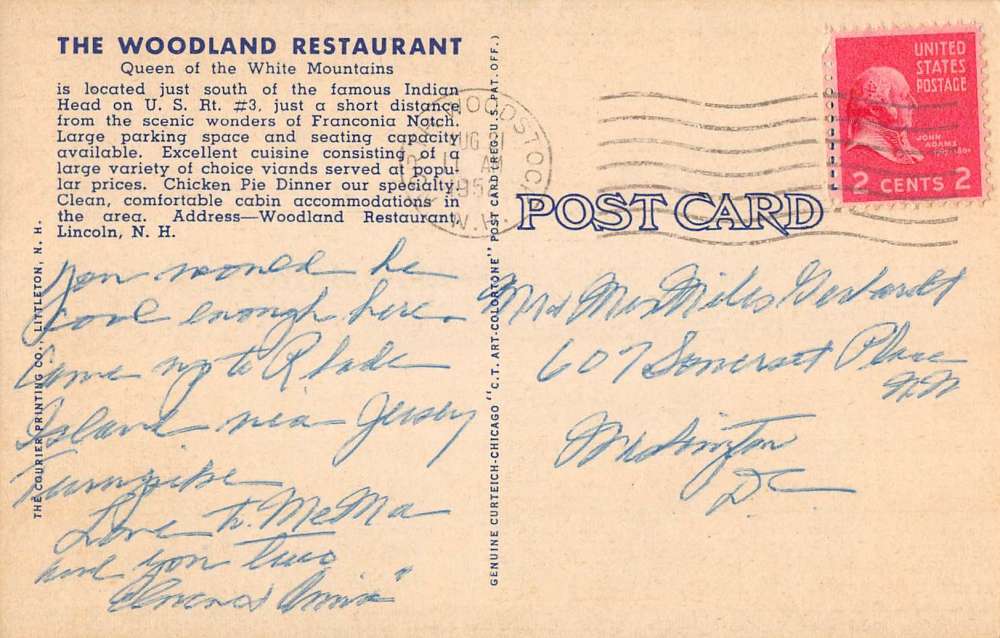 THE WOODLAND RESTAURANT
Queen of the White Mountains
is located just south of the famous Indian
Head on U. S. Rt. #3, just a short distance
from the scenic wonders of Franconia Notch.
Large parking space and seating capacity
available. Excellent cuisine consisting of a
large variety of choice viands served at popu-
lar prices. Chicken Pie Dinner our specialty.
Clean, comfortable cabin accommodations in
the area. Address—Woodland Restaurant,
Lincoln, N. H.
You would be
cool enough here.
Came up to Rhode
Island via Jersey
Turnpike
Love to MeMa
and you two
THE COURIER PRINTING CO., LITTLETON, N. H.
GENUINE CURTEICH-CHICAGO "C.T. ART-COLORTONE" POST CARD (REG. U.S. PAT. OFF.)
WOODSTOCK
AUG 21
AM
N.H.
POST CARD
UNITED
STATES
POSTAGE
JOHN
ADAMS
2 CENTS 2
Mr & Mrs Miles
607 Somerset Place
NW
Washington
DC